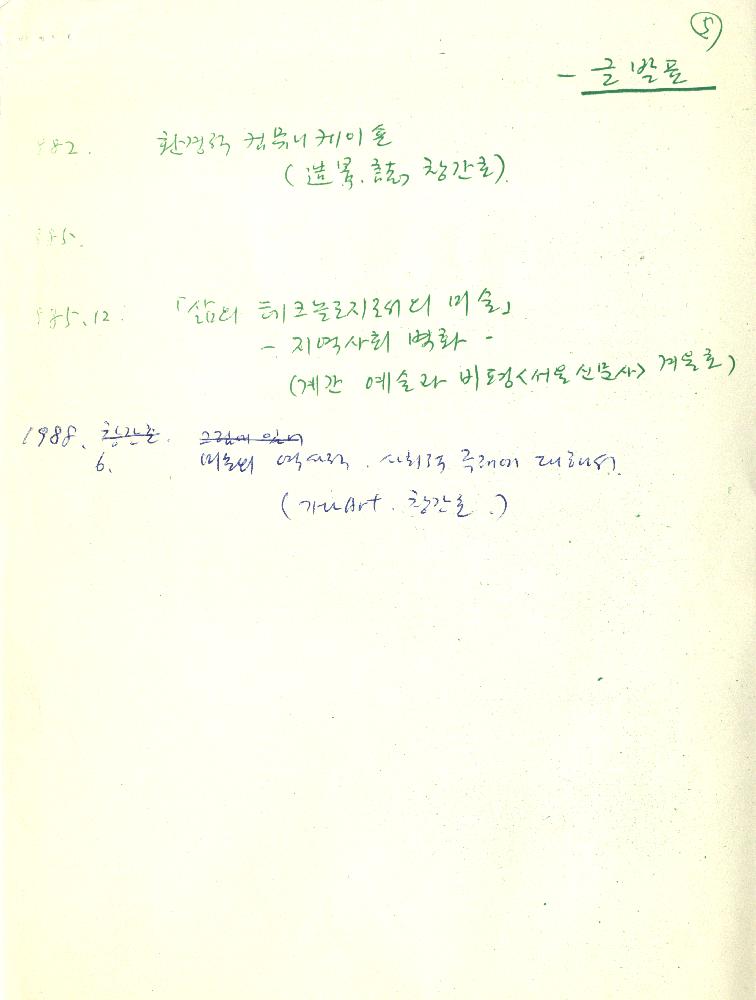 ⑤
- 글 발표
982. 환경적 컴뮤니케이숀
(造景.誌, 창간호).
985.
985.12. 「삶의 테크놀로지로서의 미술」
- 지역사회 벽화 -
(계간 예술과 비평<서울신문사> 겨울호)
1988. 창간호. 그림에 있어
6. 미술의 역사적. 사회적 주제에 대해서.
(가나Art. 창간호.)